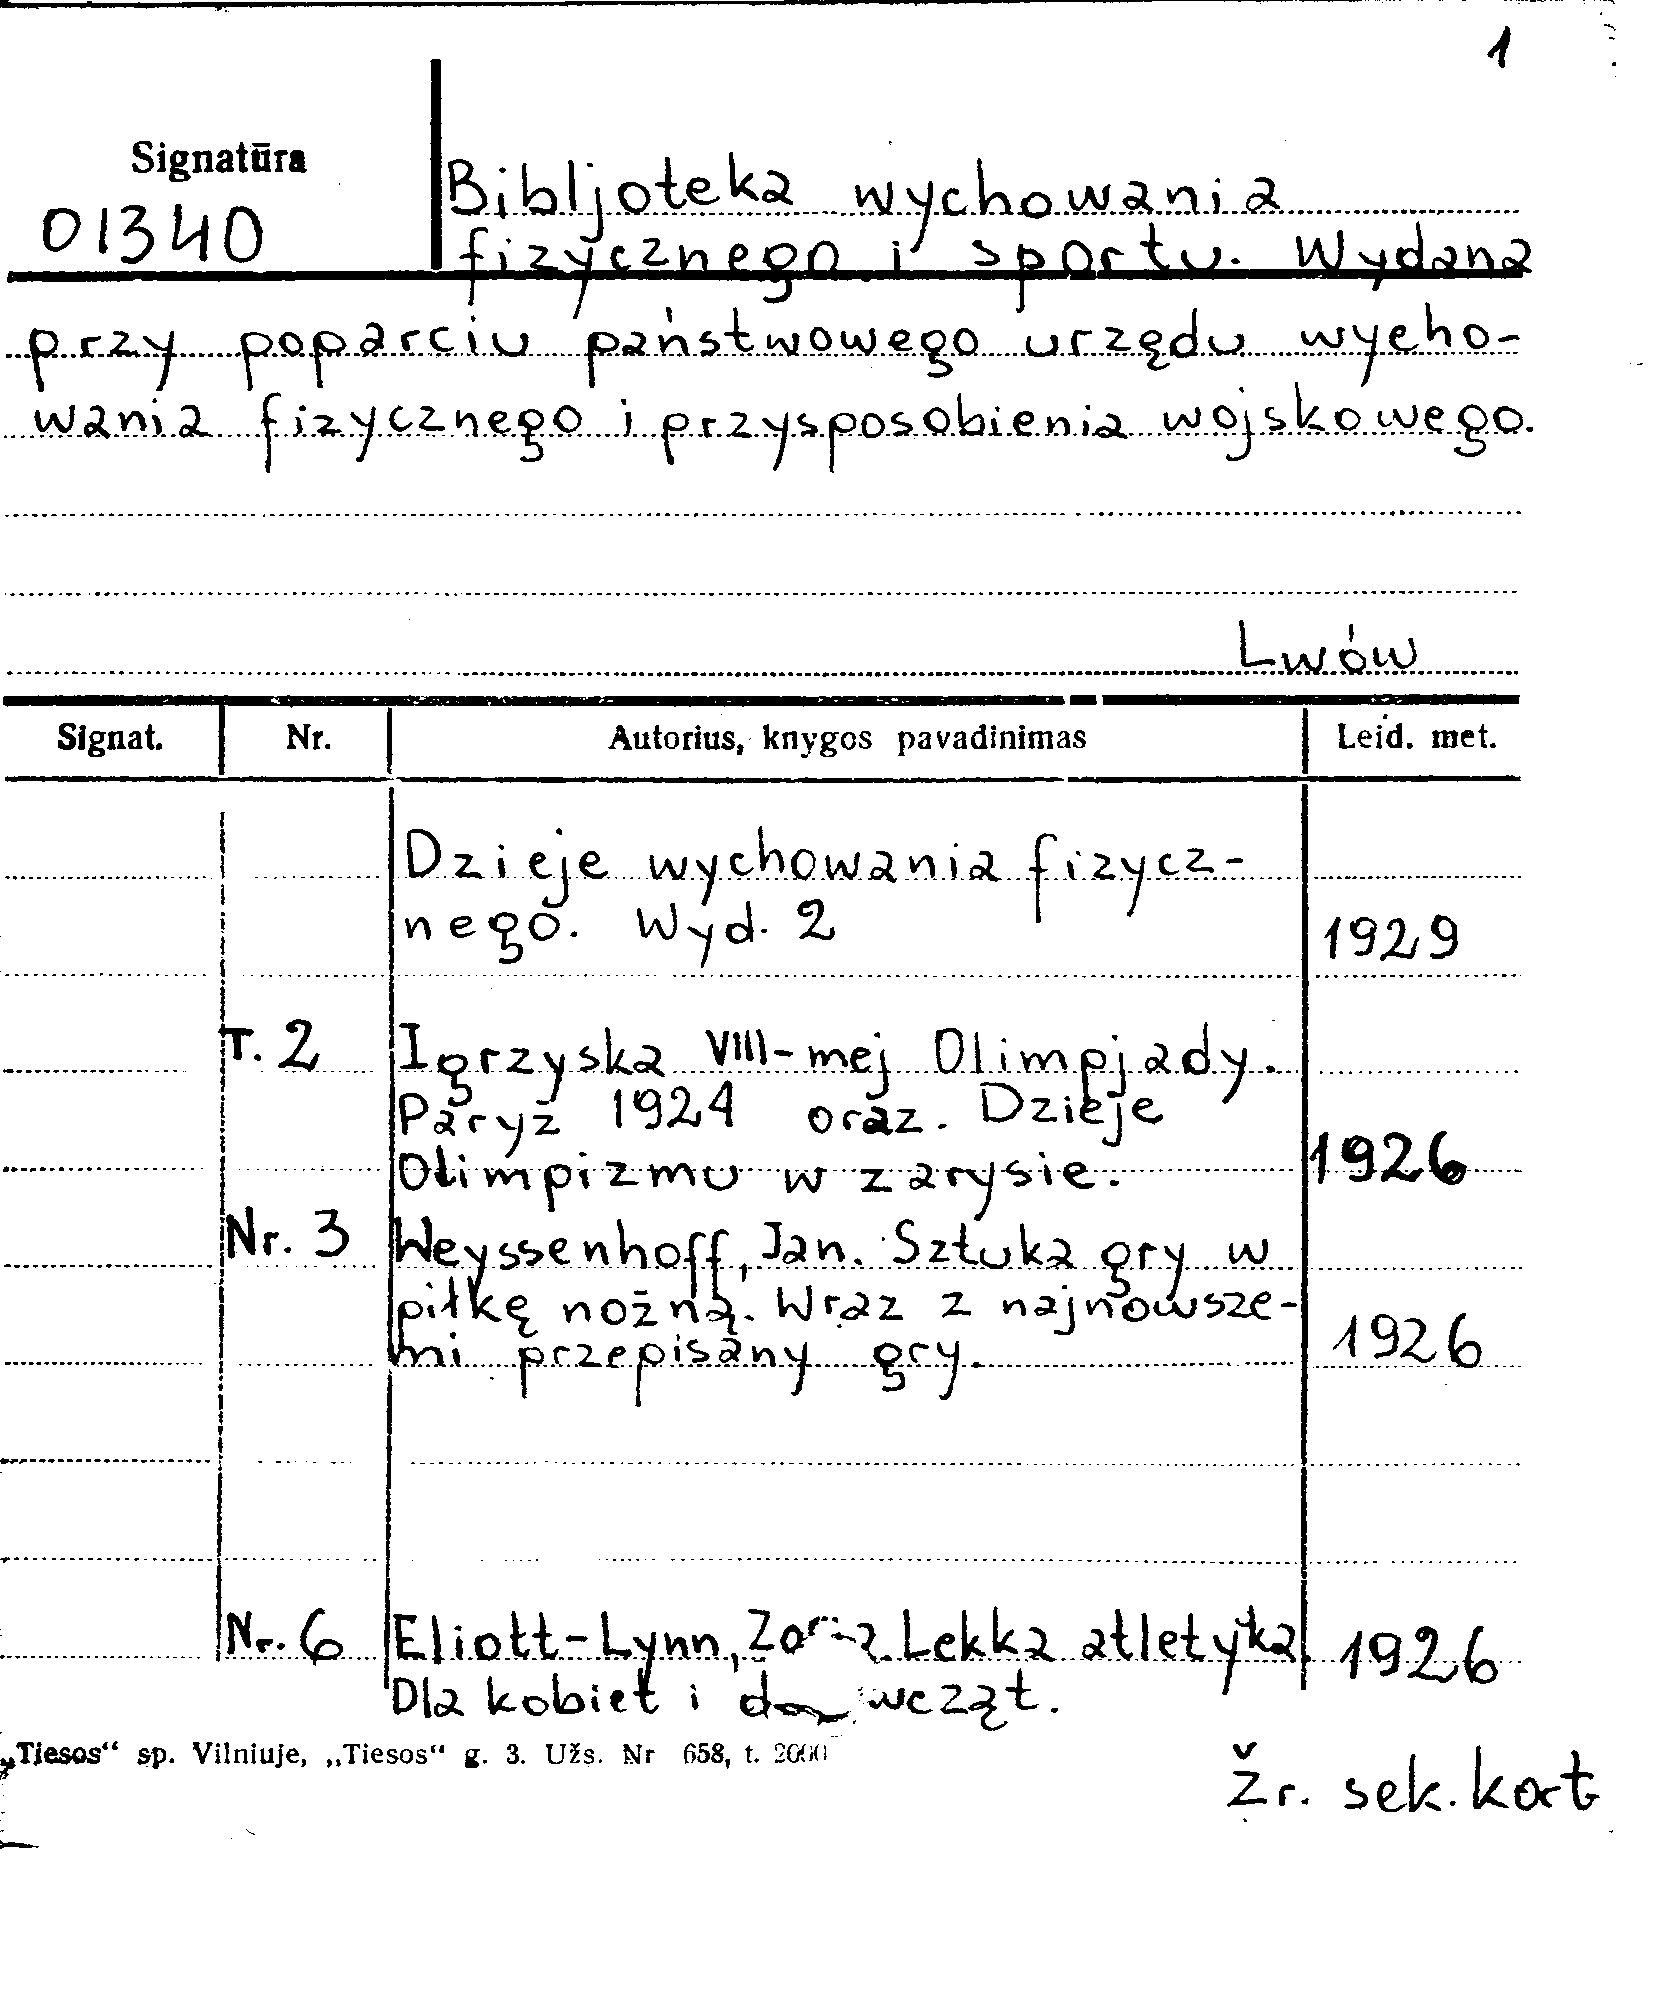 1
Signatūra
01340
Bibljoteka wychowania
fizycznego i sportu. Wydana
przy poparciu państwowego urzędu wycho-
wania fizycznego i przysposobienia wojskowego.
Lwów
Signat. Nr. Autorius, knygos pavadinimas Leid. met.
Dzieje wychowania fizycz-
nego. Wyd. 2 1929
T. 2 Igrzyska VIII-mej Olimpjady.
Paryż 1924 oraz. Dzieje
Olimpizmu w zarysie. 1926
Nr. 3 Weyssenhoff, Jan. Sztuka gry w
piłkę nożną. Wraz z najnowsze-
mi przepisany gry. 1926
Nr. 6 Eliott-Lynn, Lekka atletyka 1926
Dla kobiet i
„Tiesos“ sp. Vilniuje, „Tiesos“ g. 3. Užs. Nr 658, t. 2000
Žr. sek. kort